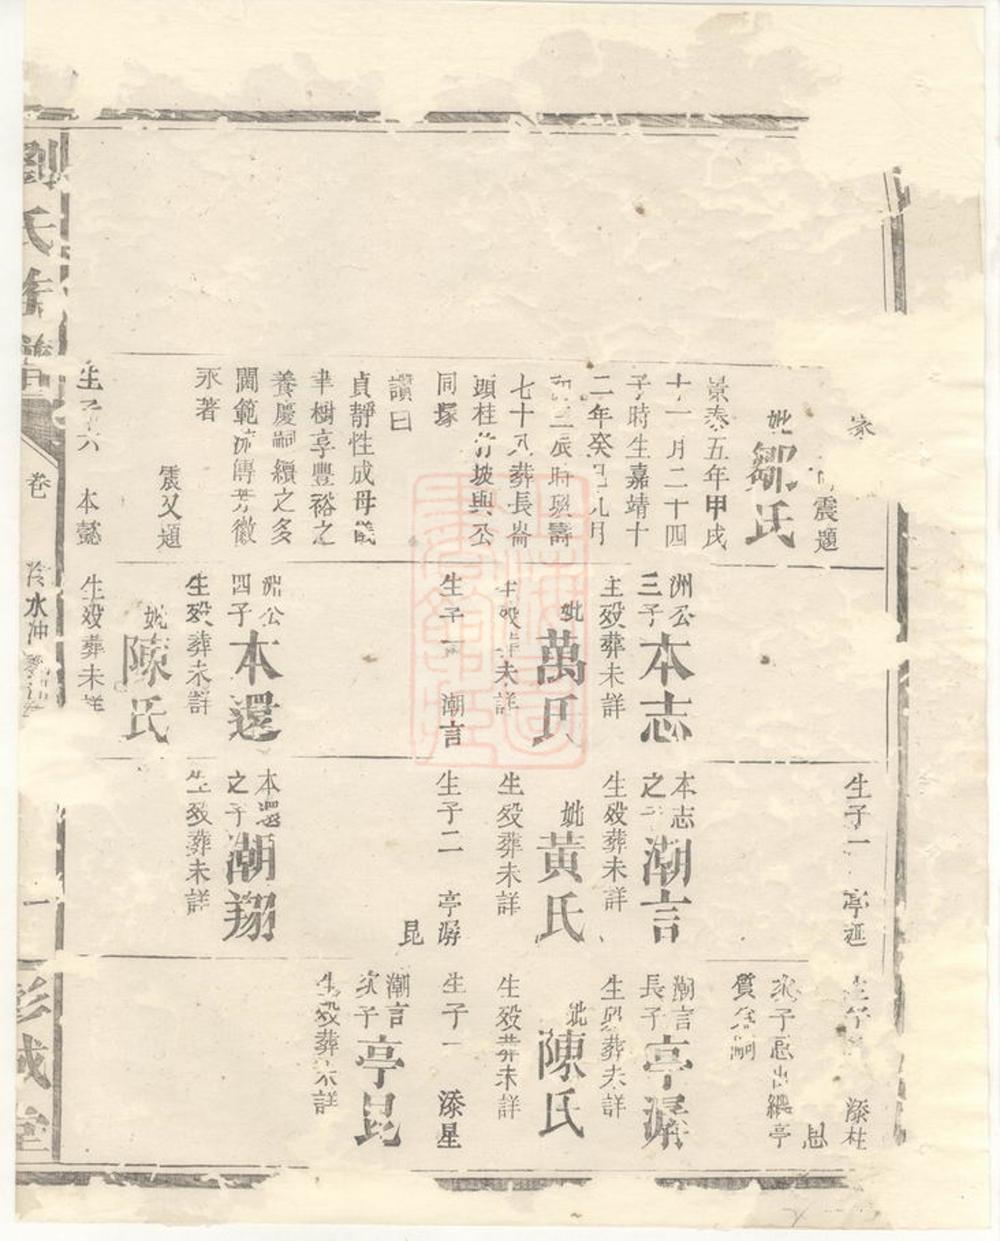 家
震題
妣鄒氏
景泰五年甲戌
十一月二十四
子時生嘉靖十
二年癸巳九月
辰時歿壽
七十八葬長崙
頭桂竹坡與公
同塚
讚曰
貞靜性成母儀
聿樹享豐裕之
養慶嗣續之多
閫範流傳芳徽
永著
震乂題
生子六 本懿
洲公三子本志
生歿葬未詳
妣萬氏
生歿葬未詳
生子一 潮言
洲公四子本還
生歿葬未詳
妣陳氏
生歿葬未詳
生子一 亭延
本志之子潮言
生歿葬未詳
妣黃氏
生歿葬未詳
生子二 亭潺
昆
本還之子潮翔
生歿葬未詳
生子 添柱
次子息出繼亭
質為嗣
潮言長子亭潺
生歿葬未詳
妣陳氏
生歿葬未詳
生子一 添星
潮言次子亭昆
生歿葬未詳
劉氏族譜
卷
冷水冲
一
彭城堂